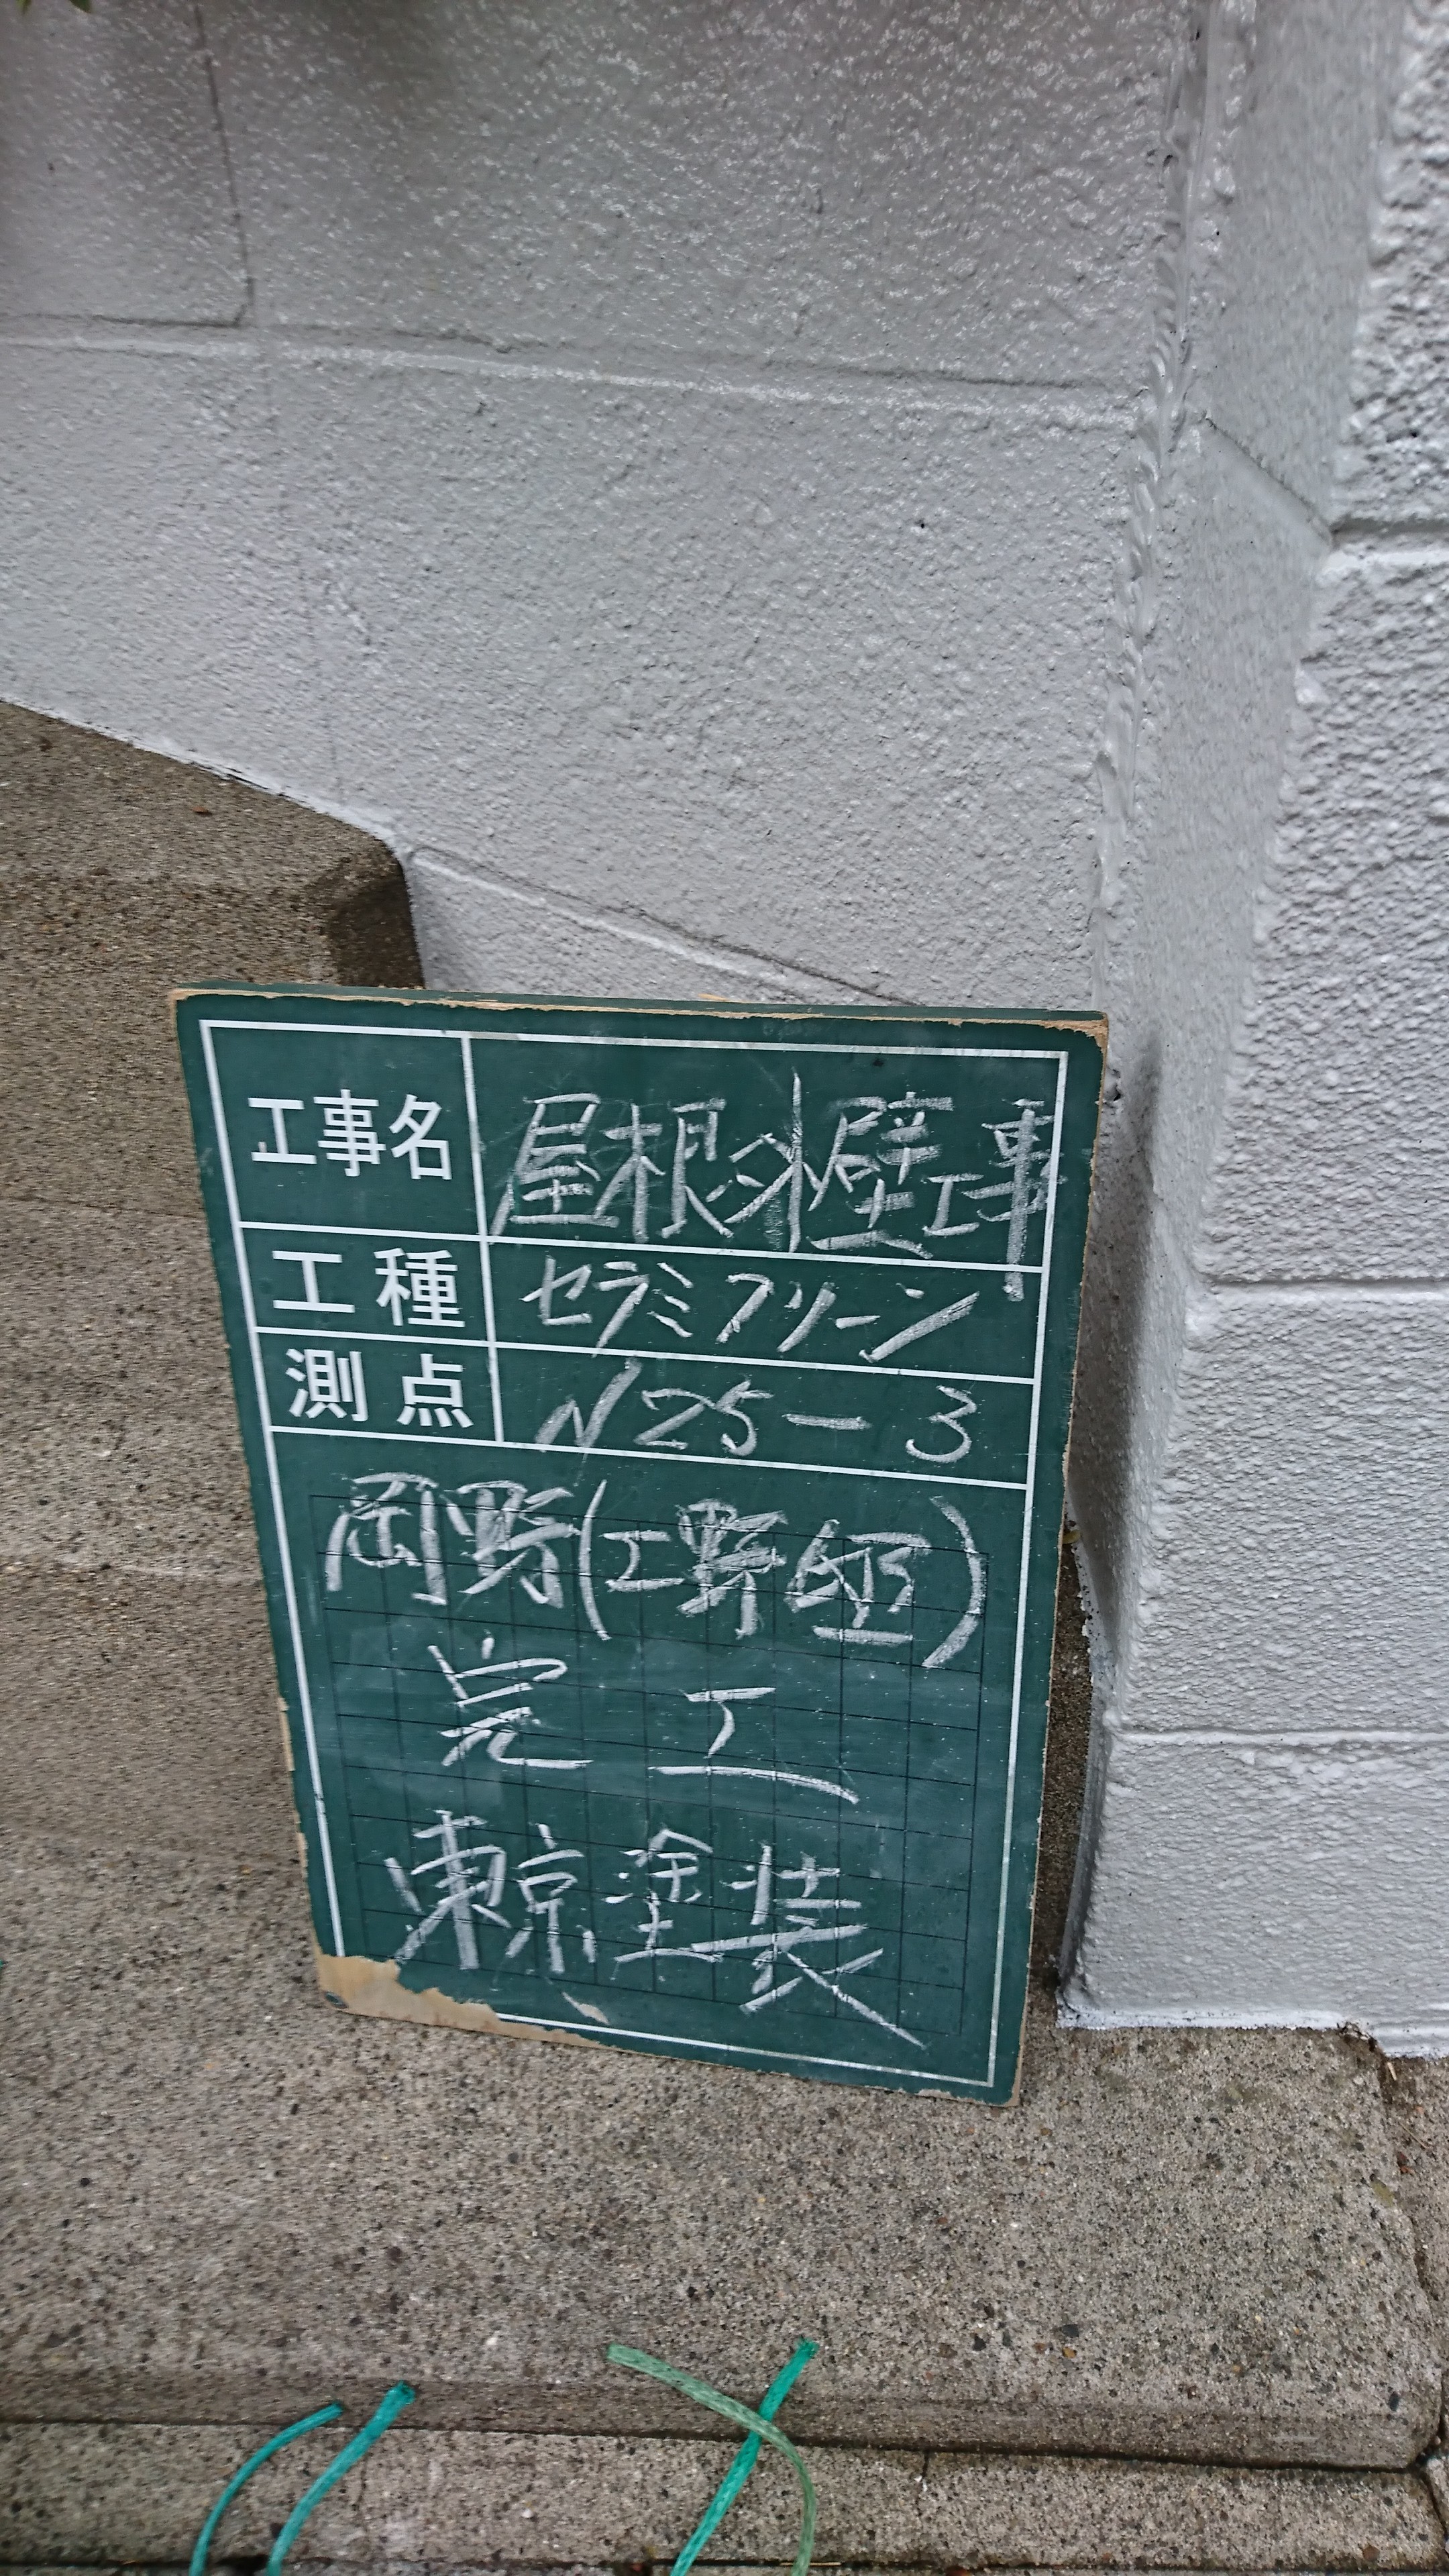 工事名 屋根外壁工事
工種 セラミクリーン
測点 N25-3
岡野(工野邸)
完工
東京塗装